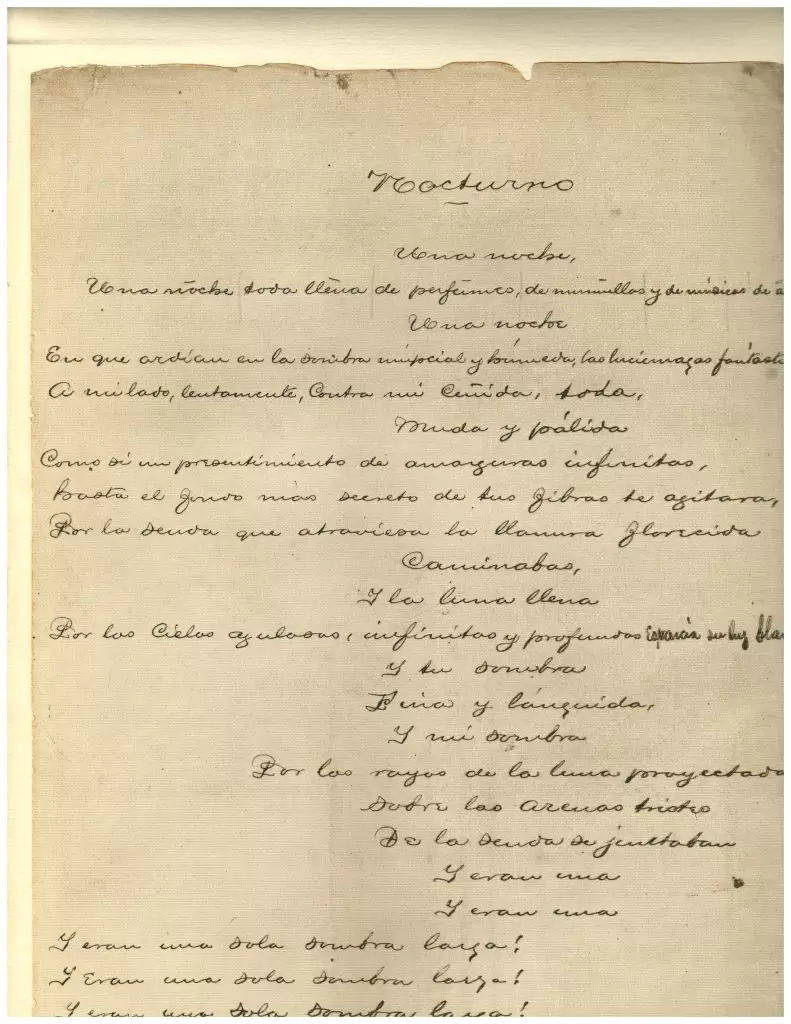 Nocturno
Una noche,
Una noche toda llena de perfumes, de murmullos y de músicas de a
Una noche
En que ardían en la sombra nupcial y húmeda, las luciernagas fantast
A mi lado, lentamente, Contra mi ceñida, toda,
Muda y pálida
Como si un presentimiento de amarguras infinitas,
hasta el fondo más secreto de tus fibras te agitara,
Por la senda que atraviesa la llanura florecida
Caminabas,
Y la luna llena
Por los Cielos azulosos, infinitos y profundos esparcía su luz blan
Y tu sombra
Fina y lánguida,
Y mi sombra
Por los rayos de la luna proyectada
Sobre las arenas tristes
De la senda se juntaban
Y eran una
Y eran una
Y eran una sola sombra larga!
Y Eran una sola sombra larga!
Y eran una sola sombra larga!